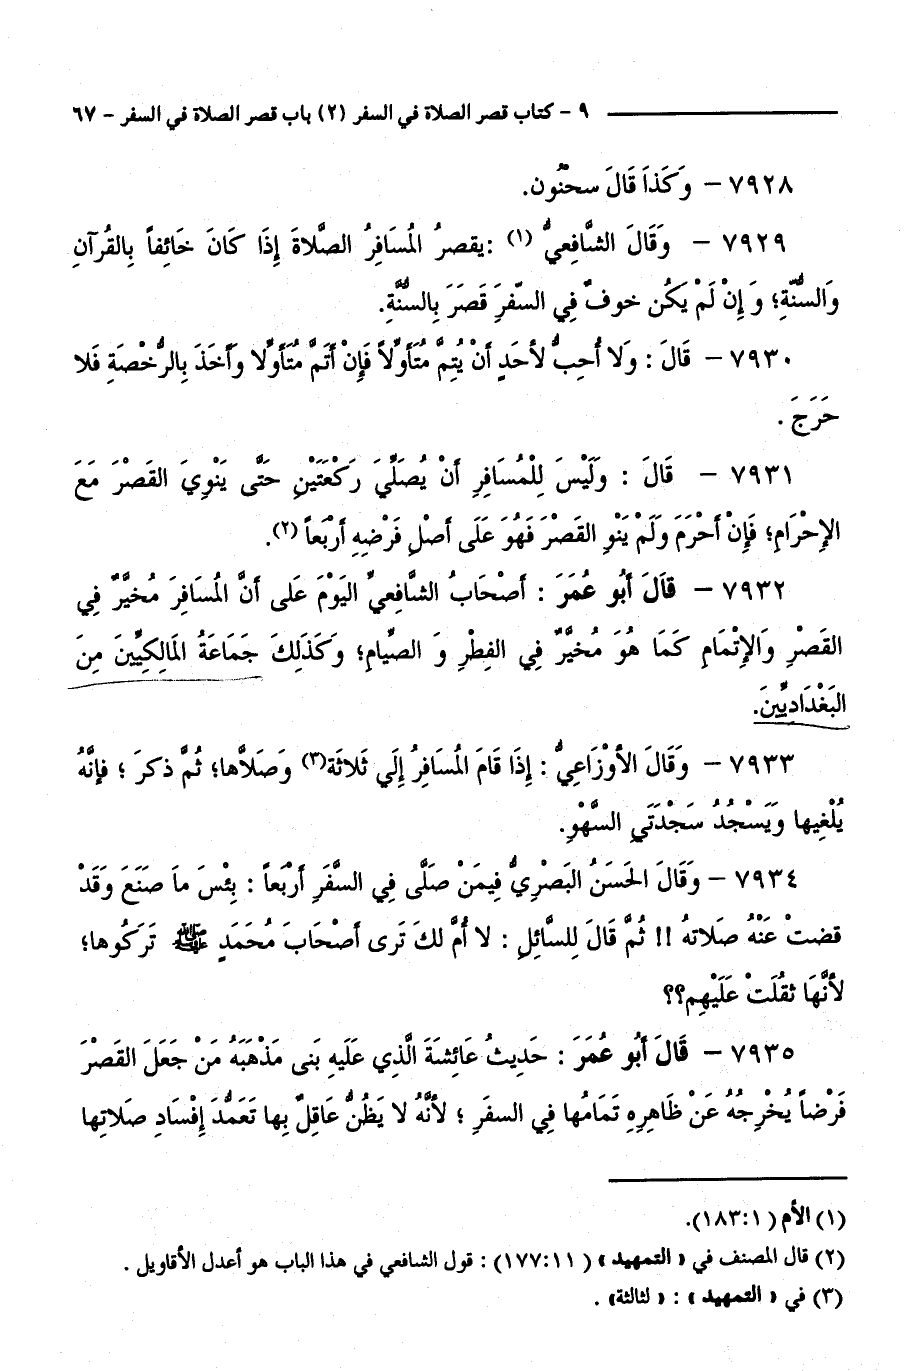 ٩ - كتاب قصر الصلاة في السفر (٢) باب قصر الصلاة في السفر - ٦٧
٧٩٢٨ - وَكَذاَ قَالَ سحنُون.
٧٩٢٩ - وَقَالَ الشَّافعيُّ (١) :يقصرُ المُسَافِرُ الصَّلاةَ إِذَا كَانَ خَائِفاً بِالقُرآنِ
وَالسُّنَّةِ؛ وَ إِنْ لَمْ يَكُن خوفٌ فِي السّفَرِ قَصَرَ بِالسُّنَّةِ.
٧٩٣٠ - قَالَ : وَلا أُحِبُّ لأحَدٍ أَنْ يُتِمَّ مُتَأَوِّلاً فَإِنْ أَتَمَّ مُتَأَوِّلا وَأَخَذَ بِالرُّخْصَةِ فَلا
حَرَجَ .
٧٩٣١ - قَالَ : وَلَيْسَ لِلْمُسَافِرِ أَنْ يُصَلِّيَ رَكْعَتَيْنِ حَتَّى يَنْوِيَ القَصْرَ مَعَ
الإِحْرَامِ؛ فَإِنْ أَحْرَمَ وَلَمْ يَنْوِ القَصْرَ فَهُوَ عَلَى أَصْلِ فَرْضِهِ أَرْبَعاً (٢).
٧٩٣٢ - قَالَ أَبُو عُمَرَ : أَصْحَابُ الشَّافعيِّ اليَوْمَ عَلى أَنَّ المُسَافِرَ مُخيَّرٌ فِي
القَصْرِ وَالإِتْمَامِ كَمَا هُوَ مُخيَّرٌ فِي الفِطْرِ وَ الصيَامِ؛ وَكَذَلِكَ جَمَاعَةُ المَالِكيِّينَ مِنَ
البَغْدَاديِّينَ.
٧٩٣٣ - وَقَالَ الأوْزَاعيُّ : إِذَا قَامَ المُسَافِرُ إِلَي ثَلاثَة(٣) وَصَلاَّها؛ ثُمَّ ذكرَ ؛ فإنَّهُ
يُلْغِيها وَيَسْجُدُ سَجْدَتَي السَّهْوِ.
٧٩٣٤ - وَقَالَ الحَسَنُ البَصْريُّ فِيمَنْ صَلَّى فِي السَّفَرِ أَرْبَعاً : بِئْسَ ماَ صَنَعَ وَقَدْ
قضتْ عَنْهُ صَلاتهُ !! ثُمَّ قَالَ لِلسَّائِلِ : لا أُمَّ لكَ تَرى أَصْحَابَ مُحَمَدٍ ﷺ تَرَكُوها؛
لأنَّهَا ثقُلَتْ عَلَيْهِم؟؟
٧٩٣٥ - قَالَ أَبُو عُمَرَ : حَدِيثُ عَائشةَ الَّذي عَلَيهِ بَنى مَذْهَبَهُ مَنْ جَعَلَ القَصْرَ
فَرْضاً يُخْرِجُهُ عَنْ ظَاهِرِهِ تَمَامُها فِي السفَرِ ؛ لأنَّهُ لا يَظُنُّ عَاقِلٌ بِها تَعَمُّدَ إِفْسَادِ صَلاتِها
(١) الأم (١٨٣:١).
(٢) قال المصنف في « التمهيد » (١١ :١٧٧) : قول الشافعي في هذا الباب هو أعدل الأقاويل .
(٣) في « التمهيد » : « لثالثة» .